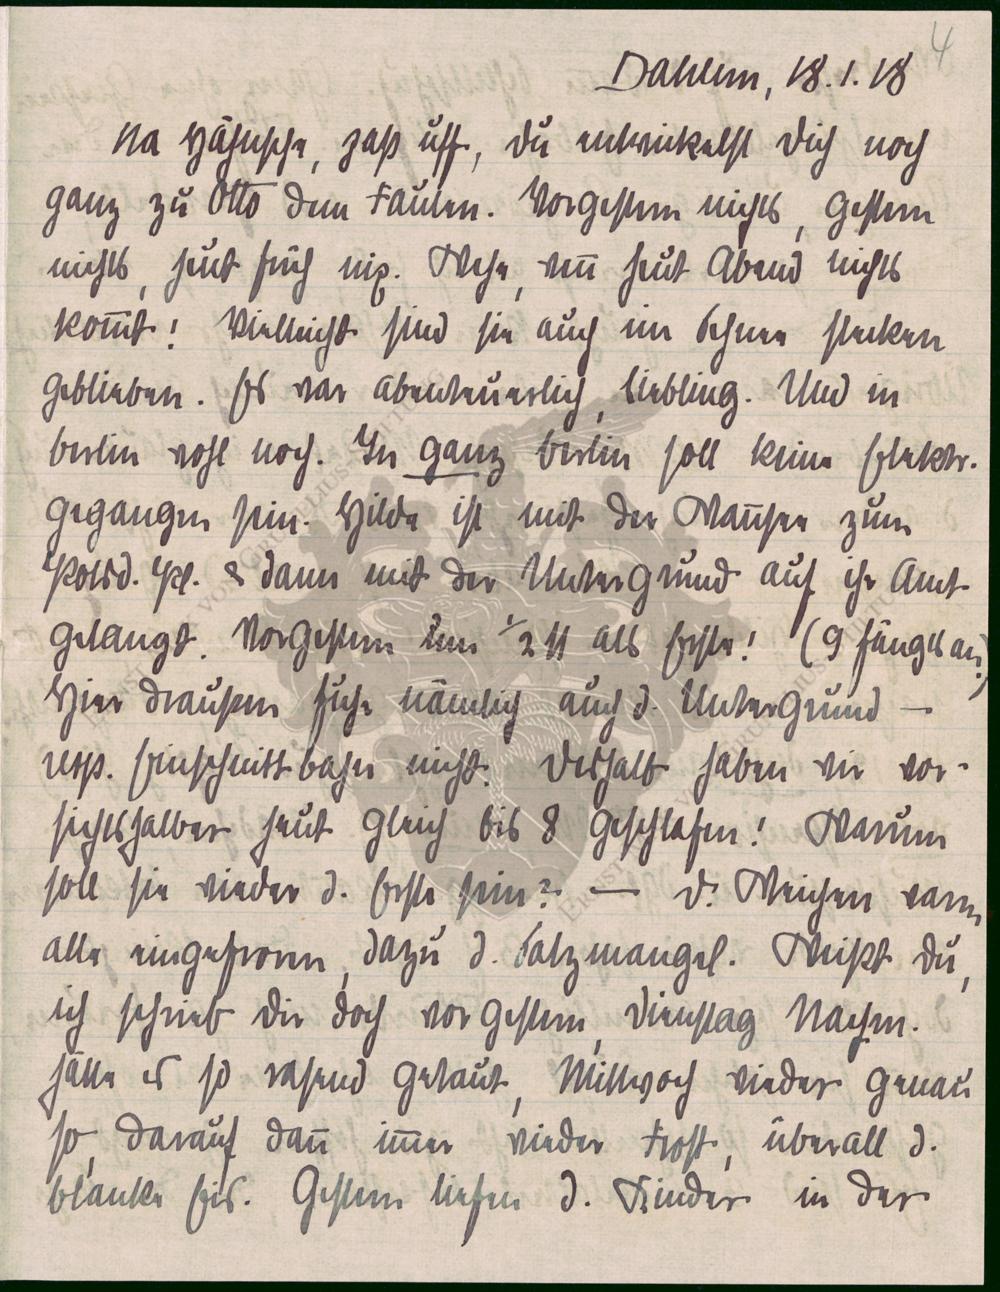 4
Dahlem, 18.1.18
Na Hähnsche, paß uff, Du entwickelst Dich noch
ganz zu Otto dem Faulen. Vorgestern nichts, gestern
nichts, heut früh nix. Wehe, weñ heut Abend nichts
kom̃t! Vielleicht sind sie auch im Schnee stecken
geblieben. Es war abenteuerlich, Liebling. Und in
Berlin wohl noch. In ganz Berlin soll keine Elektr.
gegangen sein. Hilde ist mit der Wañsee zum
Potsd. Pl. & dann mit der Untergrund auf ihr Amt
gelangt. Vorgestern um ½ 11 als Erste! (9 fängts an)
Hier draußen fuhr nämlich auch d. Untergrund –
resp. Einschnittbahn nicht. Deshalb haben wir vor-
sichtshalber heut gleich bis 8 geschlafen! Warum
soll sie wieder d. Erste sein? — D. Weichen waren
alle eingefroren, dazu d. Salzmangel. Weißt Du,
ich schrieb Dir doch vorgestern, Dienstag Nachm.
hätte es so rasend getaut, Mittwoch wieder genau
so, darauf dañ im̃er wieder Frost, überall d.
blanke Eis. Gestern liefen d. Kinder in der